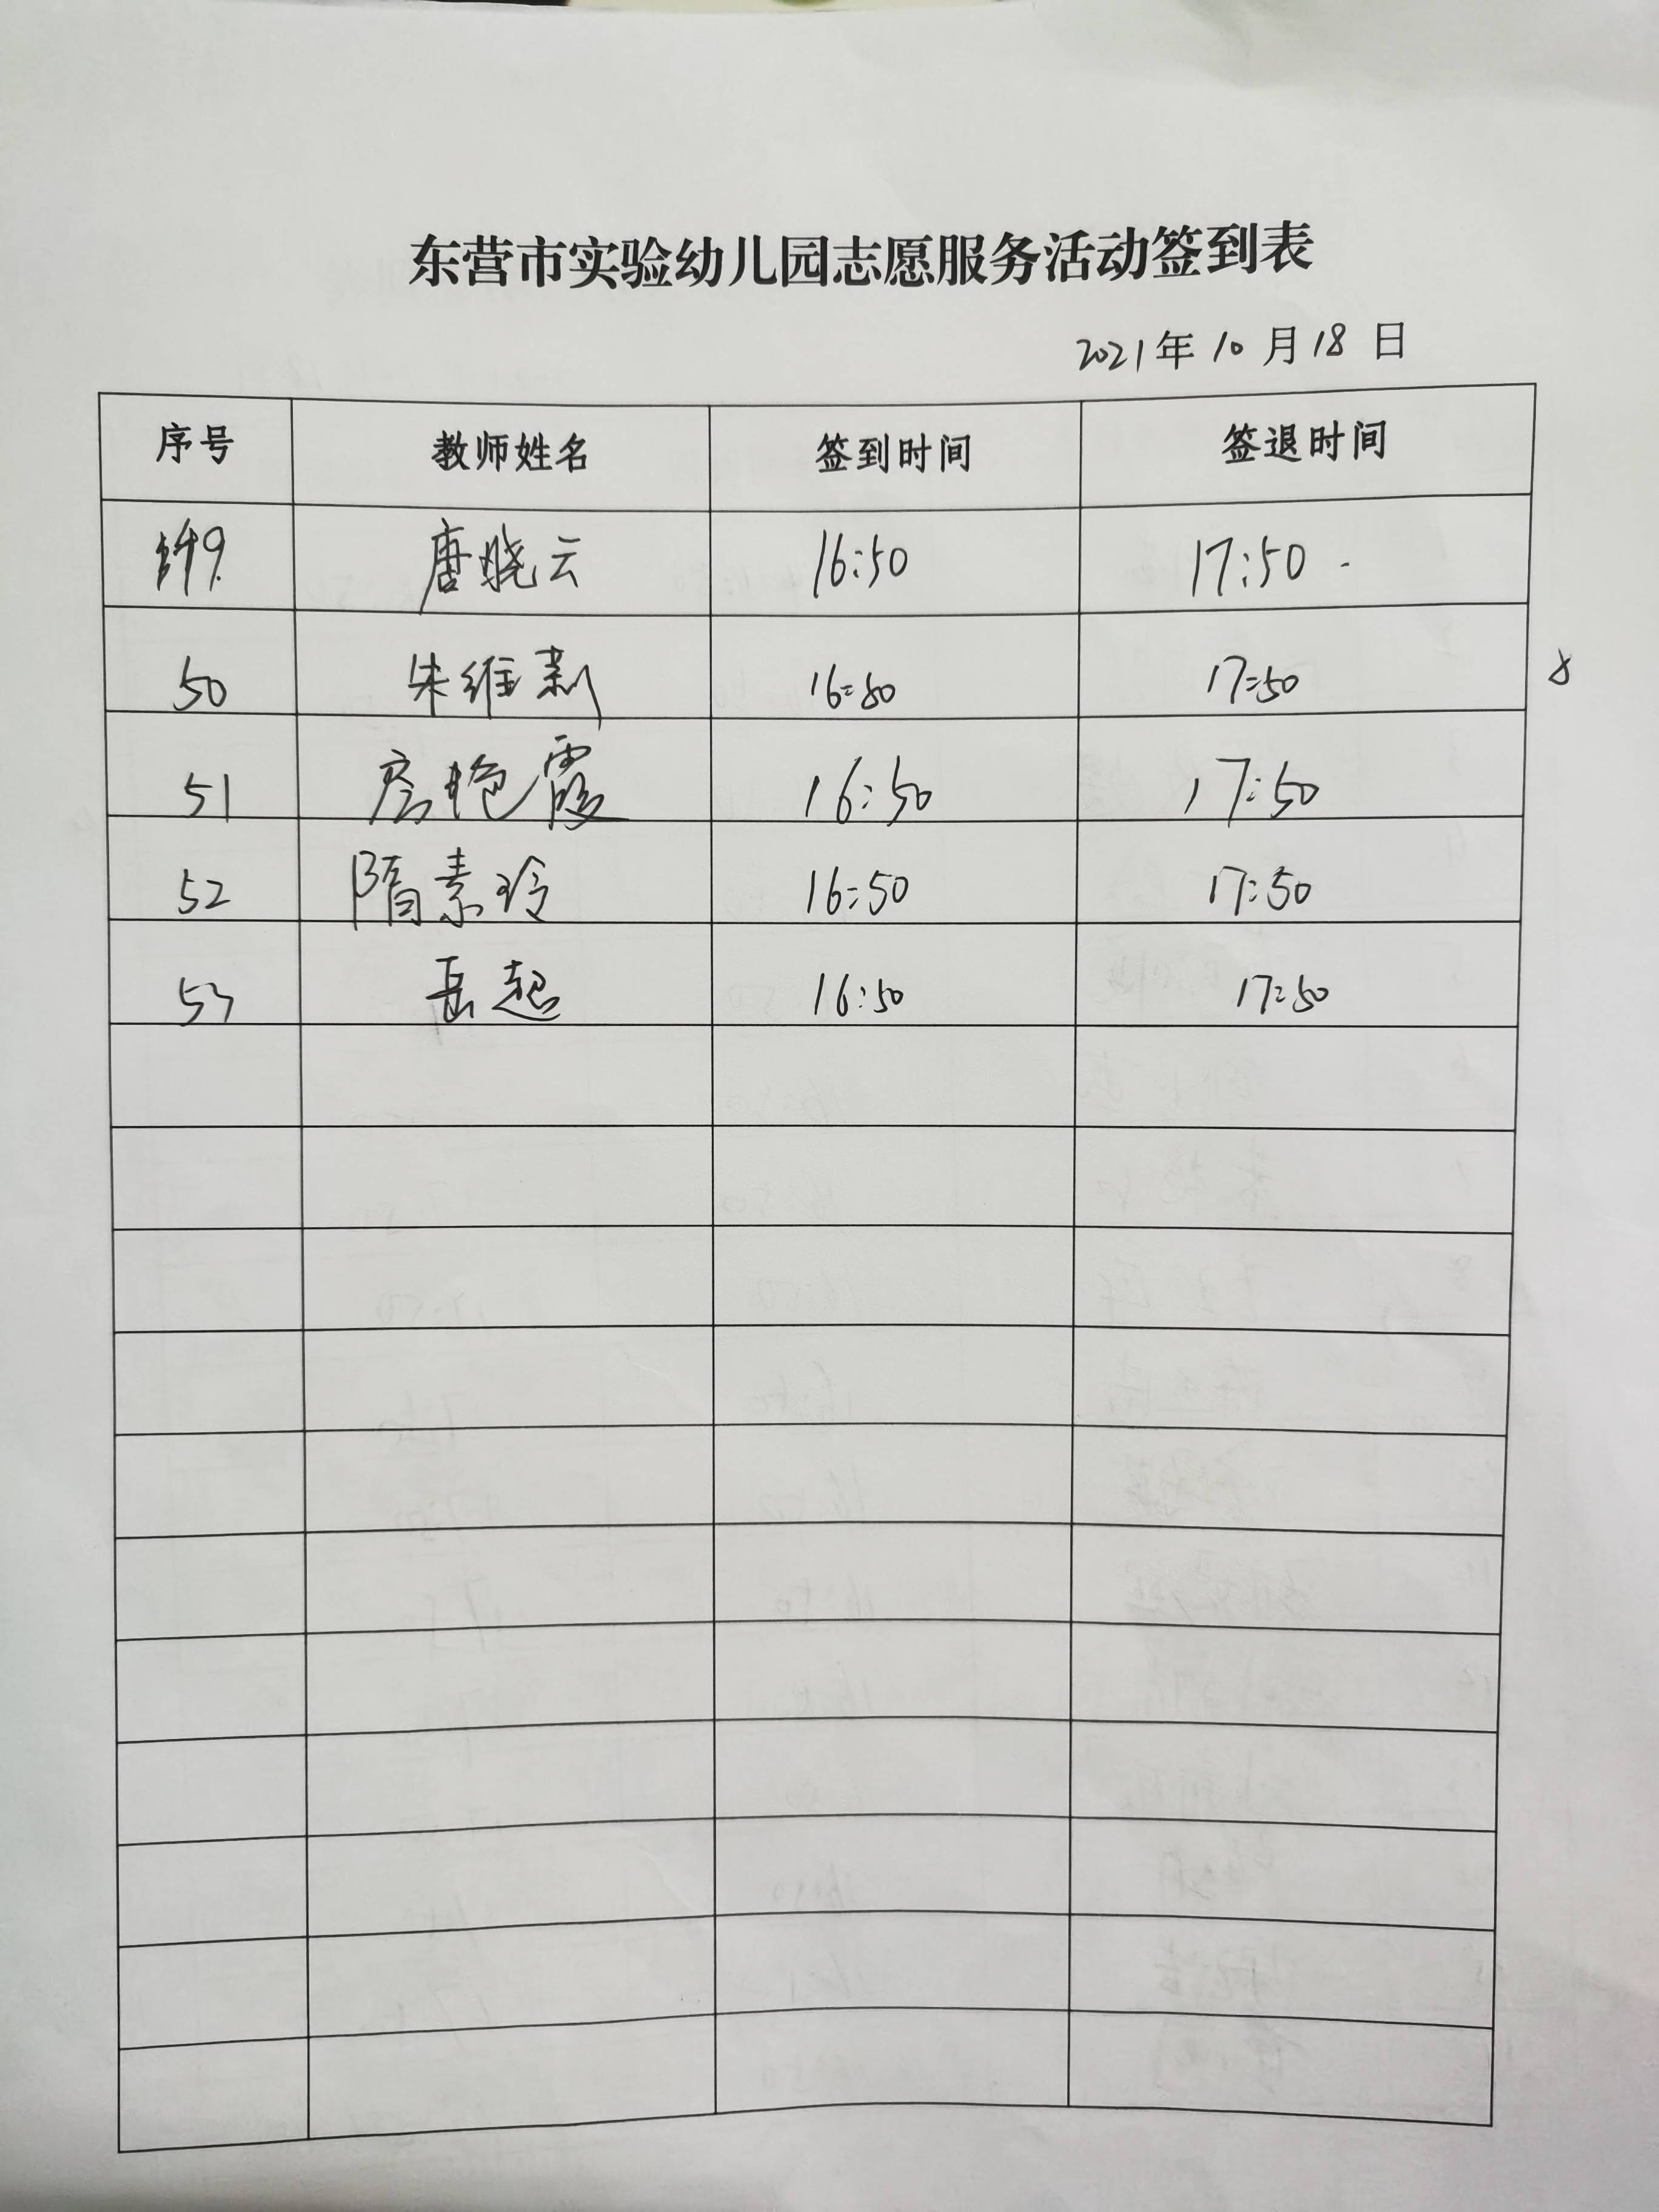 东营市实验幼儿园志愿服务活动签到表
2021年10月18日
序号 教师姓名 签到时间 签退时间
49 唐晓云 16:50 17:50
50 朱维莉 16:50 17:50
51 房艳霞 16:50 17:50
52 隋素玲 16:50 17:50
53 岳超 16:50 17:50